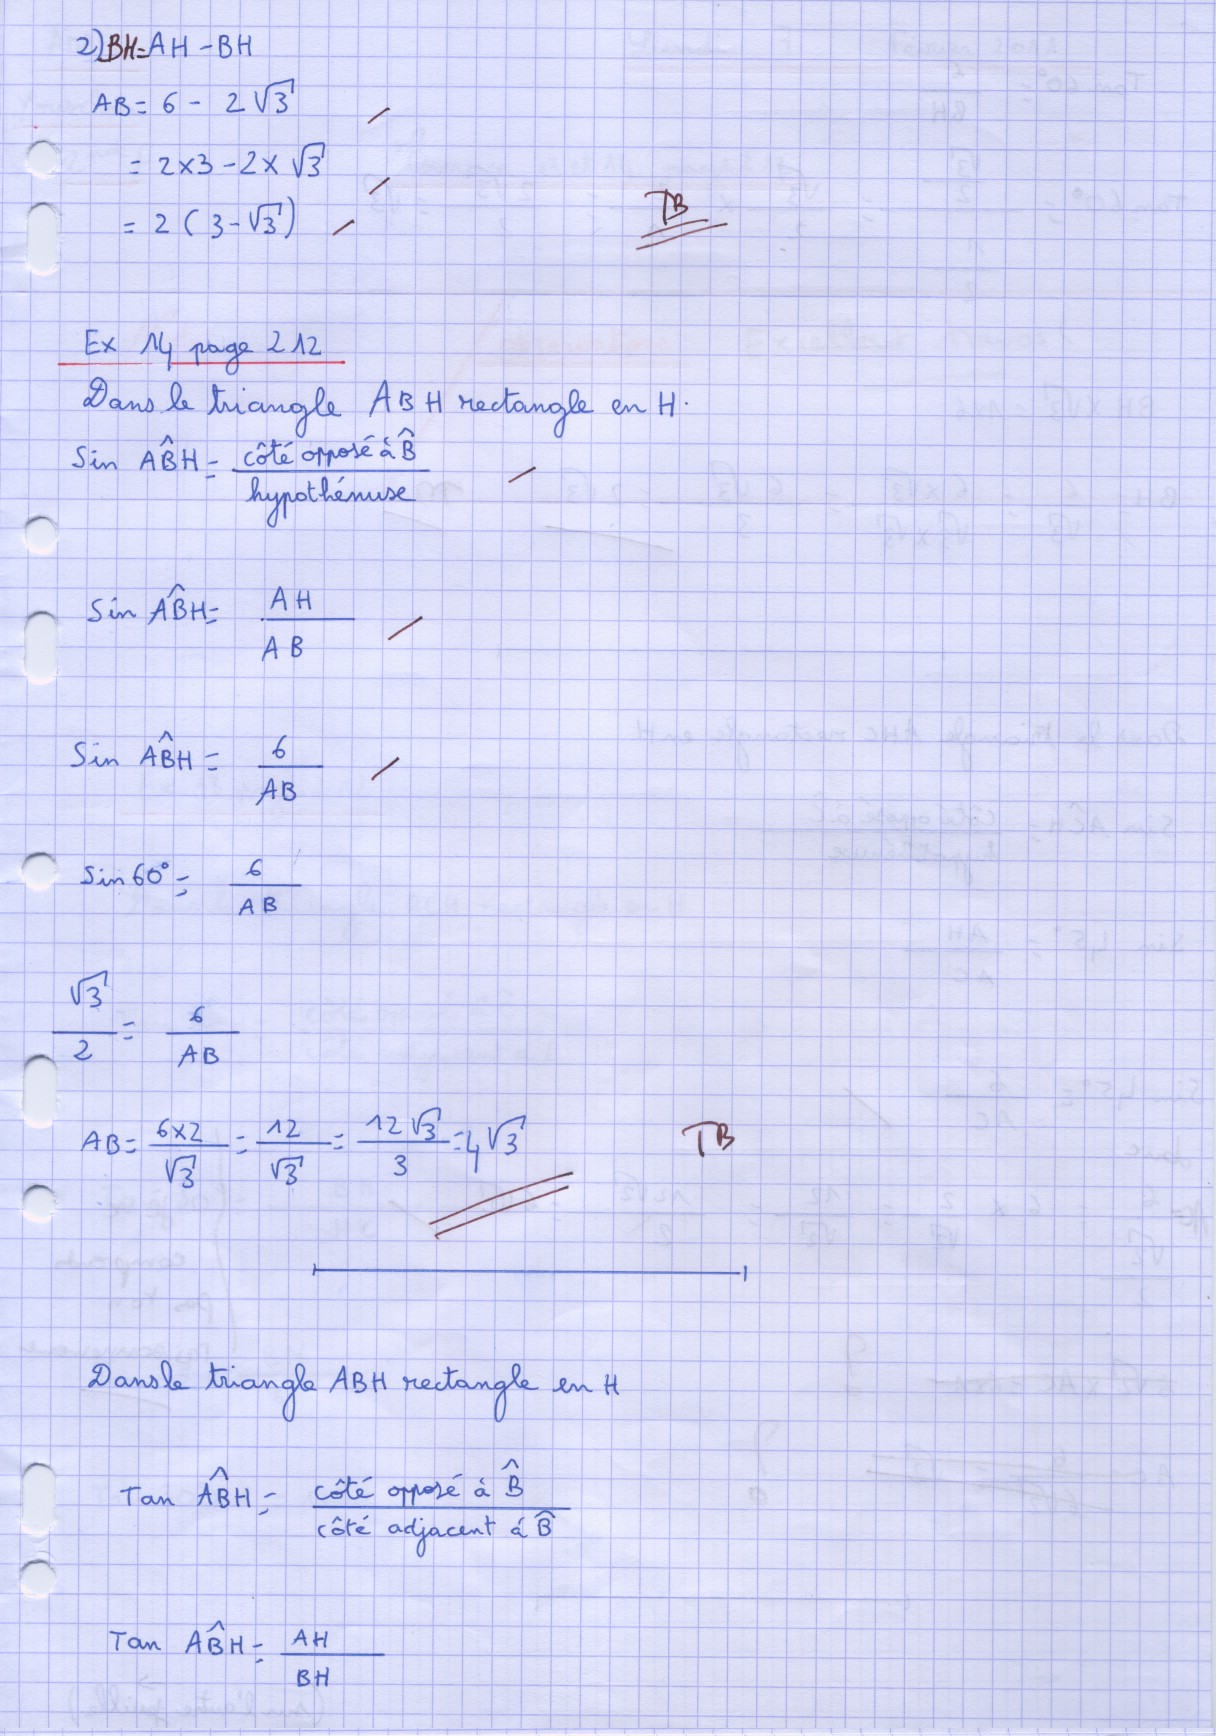 2) BH= AH - BH
AB = 6 - 2√3
= 2×3 - 2×√3
= 2 ( 3 - √3 )
TB
Ex 14 page 212
Dans le triangle ABH rectangle en H.
Sin AB̂H = côté opposé à B̂ / hypothénuse
Sin AB̂H = AH / AB
Sin AB̂H = 6 / AB
Sin 60° = 6 / AB
√3 / 2 = 6 / AB
AB = 6×2 / √3 = 12 / √3 = 12√3 / 3 = 4√3
TB
Dans le triangle ABH rectangle en H
Tan AB̂H = côté opposé à B̂ / côté adjacent á B̂
Tan AB̂H = AH / BH